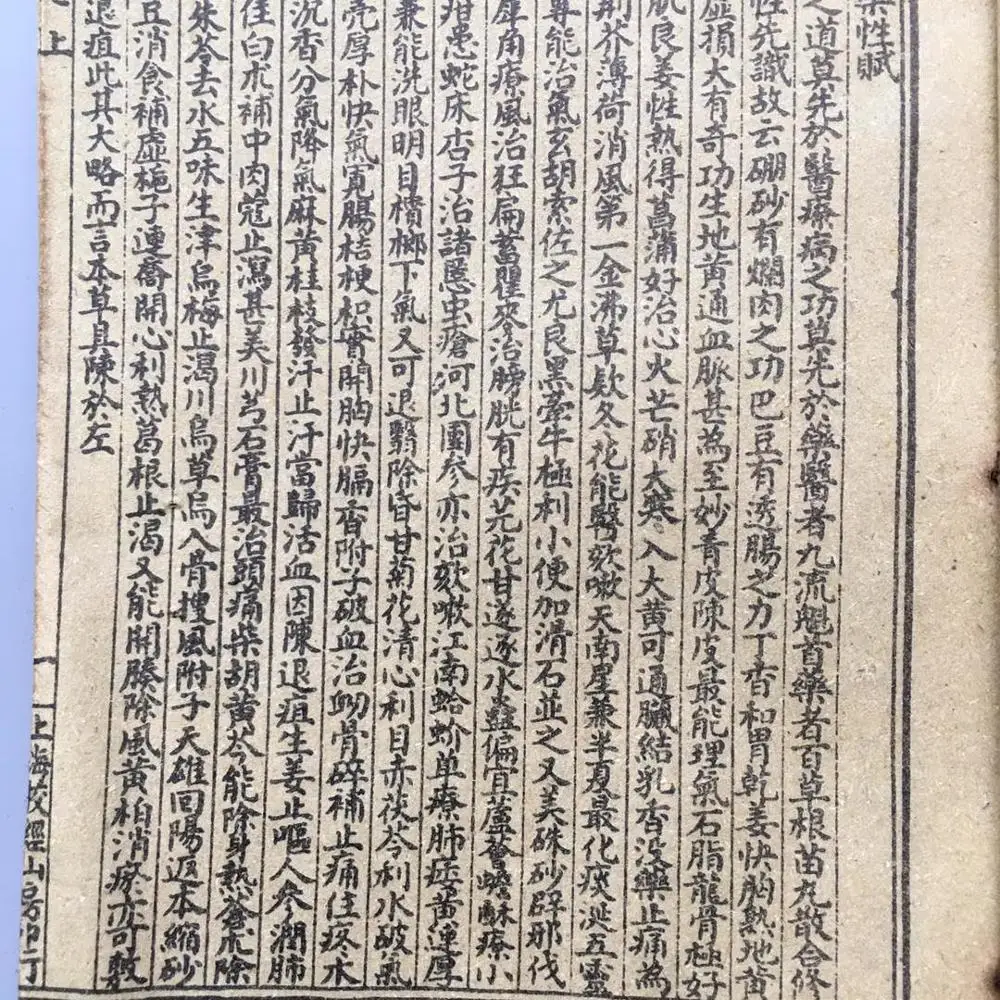 藥性賦
之道莫先於醫療病之功莫先於藥醫者九流魁首藥者百草根苗丸散合修
性先識故云硼砂有爛肉之功巴豆有透腸之力丁香和胃乾姜快胸熟地黃
虛損大有奇功生地黃通血脈甚為至妙青皮陳皮最能理氣石脂龍骨極好
風良姜性熱得菖蒲好治心火芒硝大寒入大黃可通臟結乳香沒藥止痛為
荆芥薄荷消風第一金沸草欵冬花能醫欬嗽天南星兼半夏最化痰涎五靈
專能治氣玄胡索佐之尤良黑牽牛極利小便加滑石並之又美硃砂辟邪伐
犀角療風治狂扁蓄瞿麥治膀胱有疾芫花甘遂逐水蠱偏宜蘆薈蟾酥療小
疳愚蛇床杏子治諸惡虫瘡河北團參亦治欬嗽江南蛤蚧单療肺痿黃連厚
兼能洗眼明目檳榔下氣又可退翳除昏甘菊花清心利目赤茯苓利水破氣
壳厚朴快氣寬腸桔梗枳實開胸快膈香附子破血治㘭骨碎補止痛住疼木
沉香分氣降氣麻黃桂枝發汗止汗當歸活血因陳退疸生姜止嘔人參潤肺
住白朮補中肉蔻止瀉甚美川芎石膏最治頭痛柴胡黃芩能除身熱蒼朮除
朱苓去水五味生津烏梅止渴川烏草烏入骨搜風附子天雄回陽返本縮砂
豆消食補虛梔子連喬開心利熱葛根止渴又能開腠除風黃柏消瘀亦可敷
退疽此其大略而言本草具陳於左
上
一
上海校經山房印行